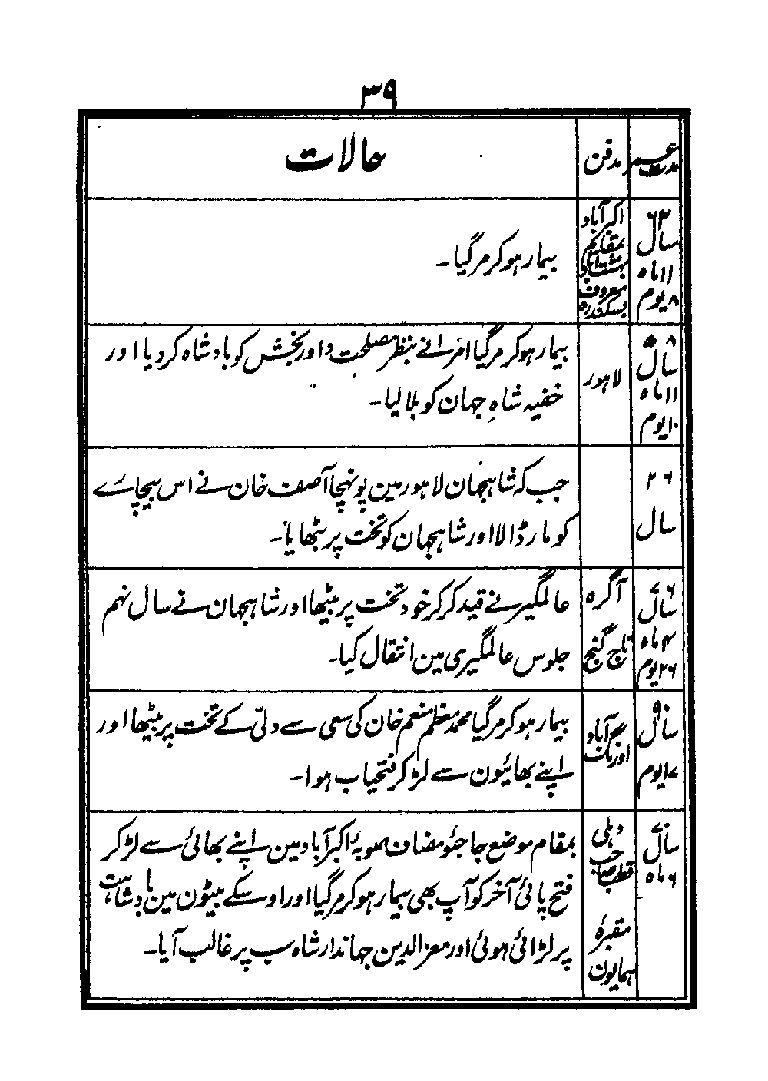 ۳۹
مدت عمر
مدفن
حالات
۶۳
سال
۱۱ ماہ
۸ یوم
اکبرآباد
بمقام
معروف
بسکندرہ
بیمار ہوکر مرگیا۔
۵۸
سال
۱۱ ماہ
۱۰ یوم
لاہور
بیمار ہوکر مرگیا امرا نے بنظر مصلحت داور بخش کو بادشاہ کردیا اور
خفیہ شاہِ جہان کو بلا لیا۔
۲۶
سال
جب کہ شاہجہان لاہور مین پونہچا آصف خان نے اس بیچارے
کو مار ڈالا اور شاہجہان کو تخت پر بٹھایا۔
۷۶
سال
۴ ماہ
۲۶ یوم
آگرہ
تاج گنج
عالمگیر نے قید کرکر خود تخت پر بیٹھا اور شاہجہان نے سال نہم
جلوس عالمگیری مین انتقال کیا۔
۹۰
سال
۱۷ یوم
اورنگ آباد
بیمار ہوکر مرگیا محمد معظم منعم خان کی سعی سے دلّی کے تخت پر بیٹھا اور
اپنے بھائیون سے لڑکر فتحیاب ہوا۔
۷۰
سال
۶ ماہ
دہلی
قطب صاحب
مقبرۂ
ہمایون
بمقام موضع جاجئو مضاف صوبۂ اکبرآباد مین اپنے بھائی سے لڑکر
فتح پائی آخر کو آپ بھی بیمار ہوکر مرگیا اور اوسکے بیٹون مین بادشاہت
پر لڑائی ہوئی اور معزالدین جہاندار شاہ سب پر غالب آیا۔